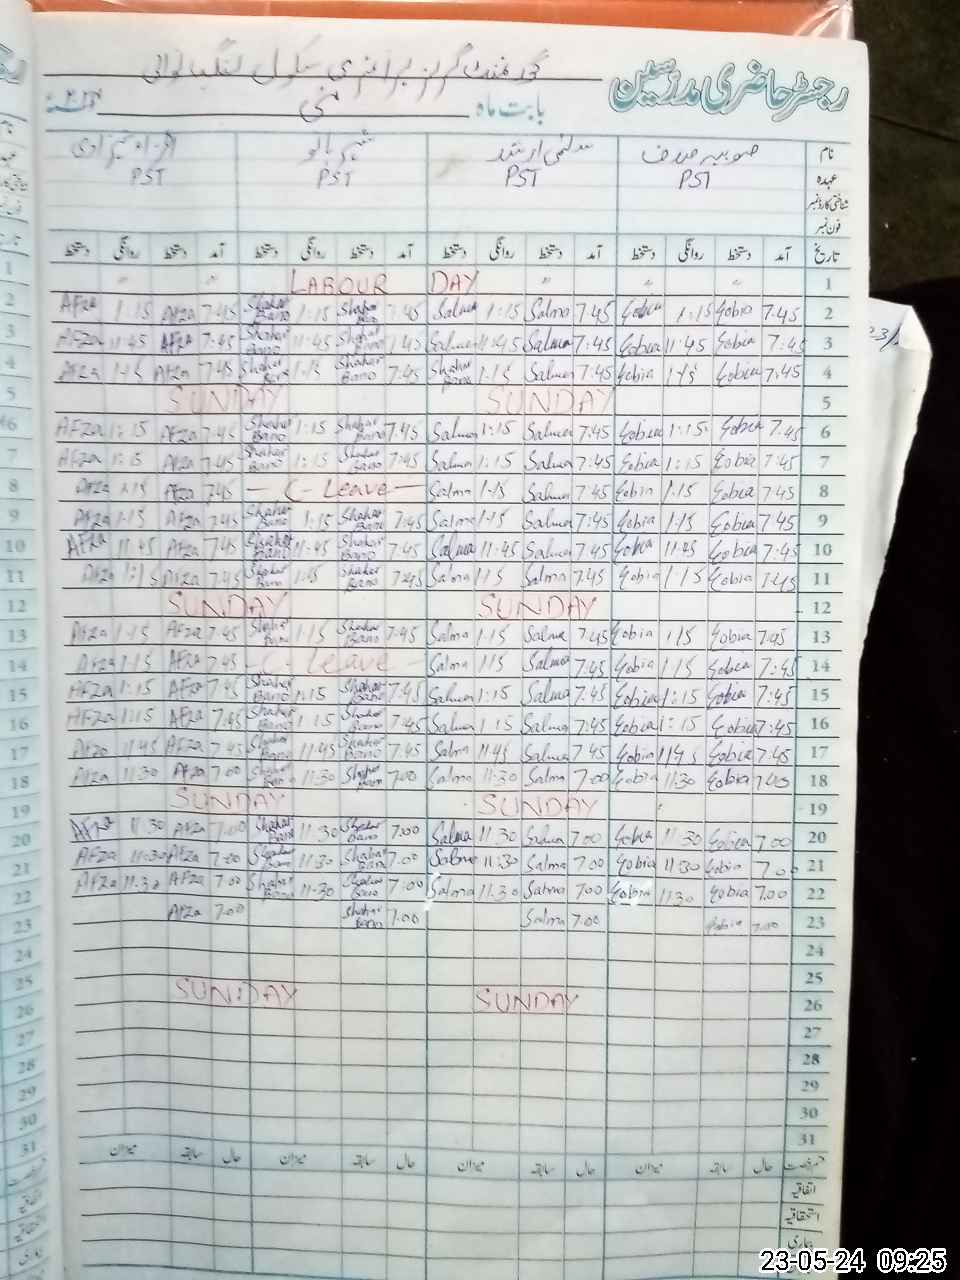 رجسٹر حاضری مدرسین
گورنمنٹ گرلز پرائمری سکول
بابت ماہ مئی
نام صوبیہ صدف سلمیٰ ارشد شہر بانو افزاء شہزادی
عہدہ PST PST PST PST
شناختی کارڈ نمبر
فون نمبر
تاریخ آمد دستخط روانگی دستخط آمد دستخط روانگی دستخط آمد دستخط روانگی دستخط آمد دستخط روانگی دستخط
1 LABOUR DAY 1
2 AFza 1:15 AFza 7:45 Shahar Bano 1:15 Shahar Bano 7:45 Salma 1:15 Salma 7:45 Gobia 1:15 Gobia 7:45 2
3 AFza 11:45 AFza 7:45 Shahar Bano 11:45 Shahar Bano 7:45 Salma 11:45 Salma 7:45 Gobia 11:45 Gobia 7:45 3
4 AFza 1:15 AFza 7:45 Shahar Bano 1:15 Shahar Bano 7:45 Shahar Bano 1:15 Salma 7:45 Gobia 1:15 Gobia 7:45 4
5 SUNDAY SUNDAY 5
6 AFza 1:15 AFza 7:45 Shahar Bano 1:15 Shahar Bano 7:45 Salma 1:15 Salma 7:45 Gobia 1:15 Gobia 7:45 6
7 AFza 1:15 AFza 7:45 Shahar Bano 1:15 Shahar Bano 7:45 Salma 1:15 Salma 7:45 Gobia 1:15 Gobia 7:45 7
8 AFza 1:15 AFza 7:45 — C- Leave — Salma 1:15 Salma 7:45 Gobia 1:15 Gobia 7:45 8
9 AFza 1:15 AFza 7:45 Shahar Bano 1:15 Shahar Bano 7:45 Salma 1:15 Salma 7:45 Gobia 1:15 Gobia 7:45 9
10 AFza 11:45 AFza 7:45 Shahar Bano 11:45 Shahar Bano 7:45 Salma 11:45 Salma 7:45 Gobia 11:45 Gobia 7:45 10
11 AFza 1:15 AFza 7:45 Shahar Bano 1:15 Shahar Bano 7:45 Salma 1:15 Salma 7:45 Gobia 1:15 Gobia 7:45 11
12 SUNDAY SUNDAY 12
13 AFza 1:15 AFza 7:45 Shahar Bano 1:15 Shahar Bano 7:45 Salma 1:15 Salma 7:45 Gobia 1:15 Gobia 7:45 13
14 AFza 1:15 AFza 7:45 — C- Leave — Salma 1:15 Salma 7:45 Gobia 1:15 Gobia 7:45 14
15 AFza 1:15 AFza 7:45 Shahar Bano 1:15 Shahar Bano 7:45 Salma 1:15 Salma 7:45 Gobia 1:15 Gobia 7:45 15
16 AFza 1:15 AFza 7:45 Shahar Bano 1:15 Shahar Bano 7:45 Salma 1:15 Salma 7:45 Gobia 1:15 Gobia 7:45 16
17 AFza 11:45 AFza 7:45 Shahar Bano 11:45 Shahar Bano 7:45 Salma 11:45 Salma 7:45 Gobia 11:45 Gobia 7:45 17
18 AFza 11:30 AFza 7:00 Shahar Bano 11:30 Shahar Bano 7:00 Salma 11:30 Salma 7:00 Gobia 11:30 Gobia 7:00 18
19 SUNDAY SUNDAY 19
20 AFza 11:30 AFza 7:00 Shahar Bano 11:30 Shahar Bano 7:00 Salma 11:30 Salma 7:00 Gobia 11:30 Gobia 7:00 20
21 AFza 11:30 AFza 7:00 Shahar Bano 11:30 Shahar Bano 7:00 Salma 11:30 Salma 7:00 Gobia 11:30 Gobia 7:00 21
22 AFza 11:30 AFza 7:00 Shahar Bano 11:30 Shahar Bano 7:00 Salma 11:30 Salma 7:00 Gobia 11:30 Gobia 7:00 22
23 AFza 7:00 Shahar Bano 7:00 Salma 7:00 Gobia 7:00 23
24 24
25 25
26 SUNDAY SUNDAY 26
27 27
28 28
29 29
30 30
31 31
قسم رخصت حال سابقہ میزان حال سابقہ میزان حال سابقہ میزان حال سابقہ میزان
اتفاقیہ
استحقاقیہ
بیماری
23-05-24 09:25